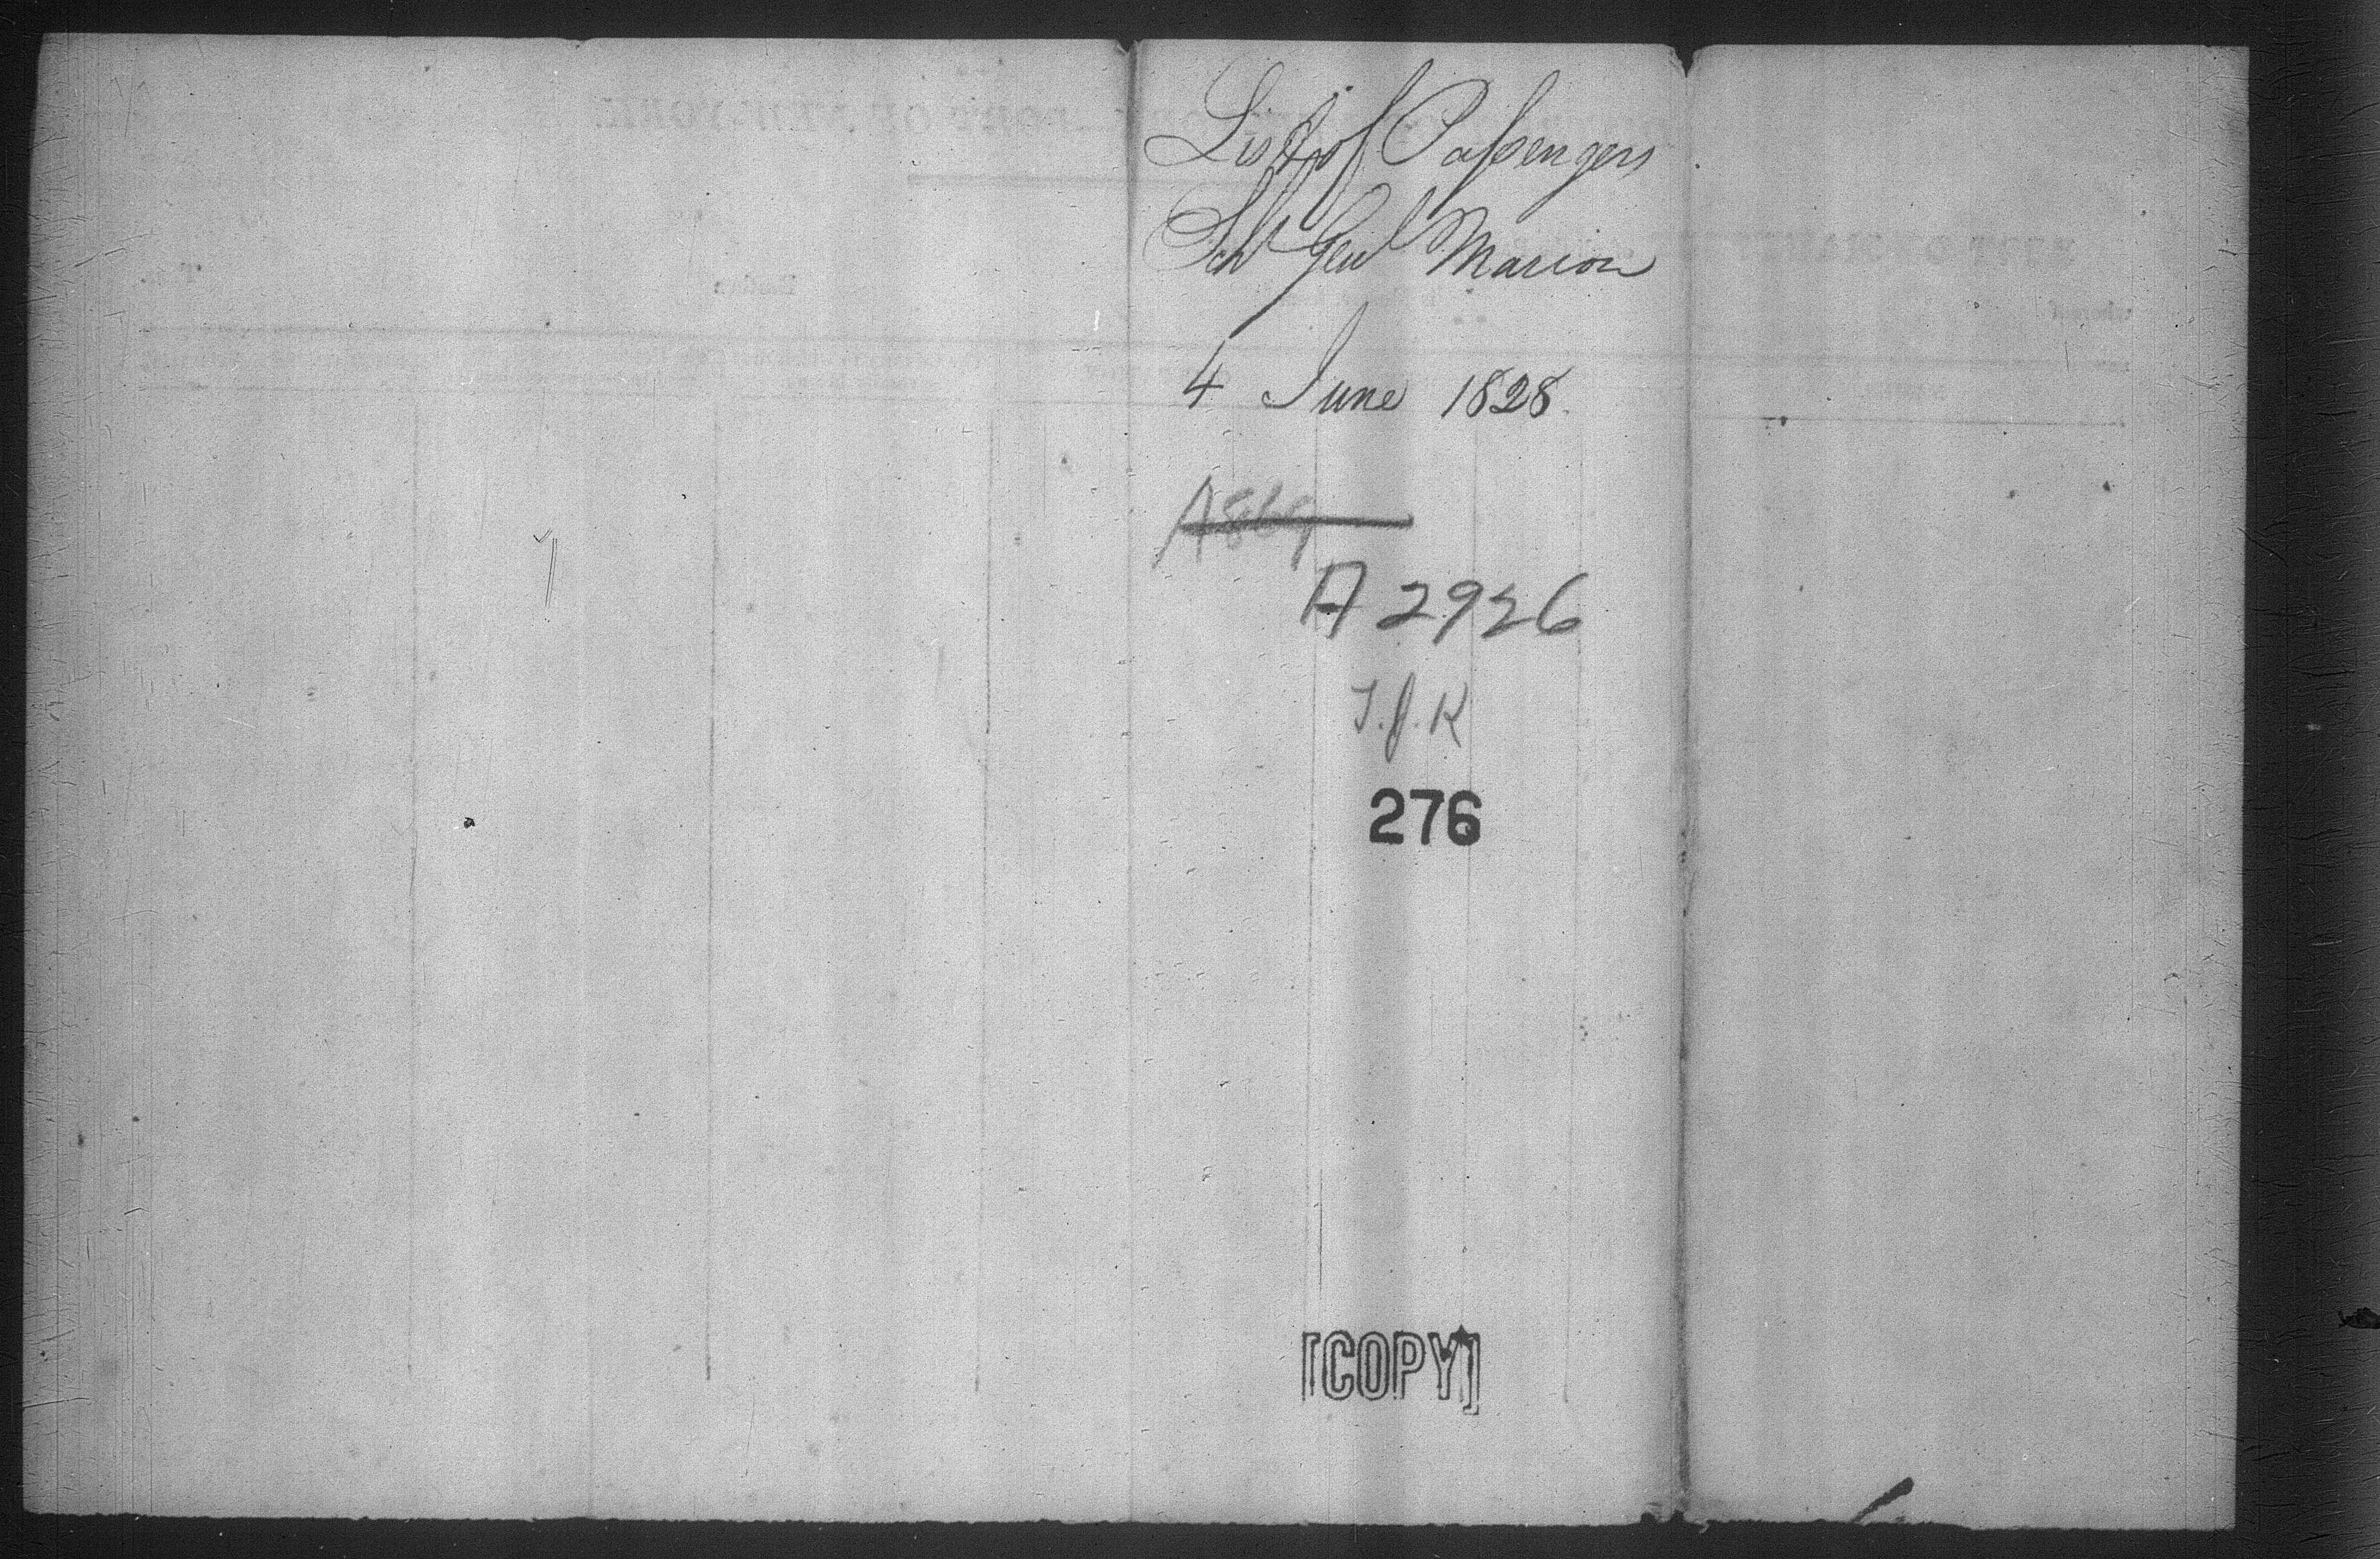 List of Passengers
Schr Genl Marion
4 June 1828
A869
A 2926
T.J.K
276
[COPY]